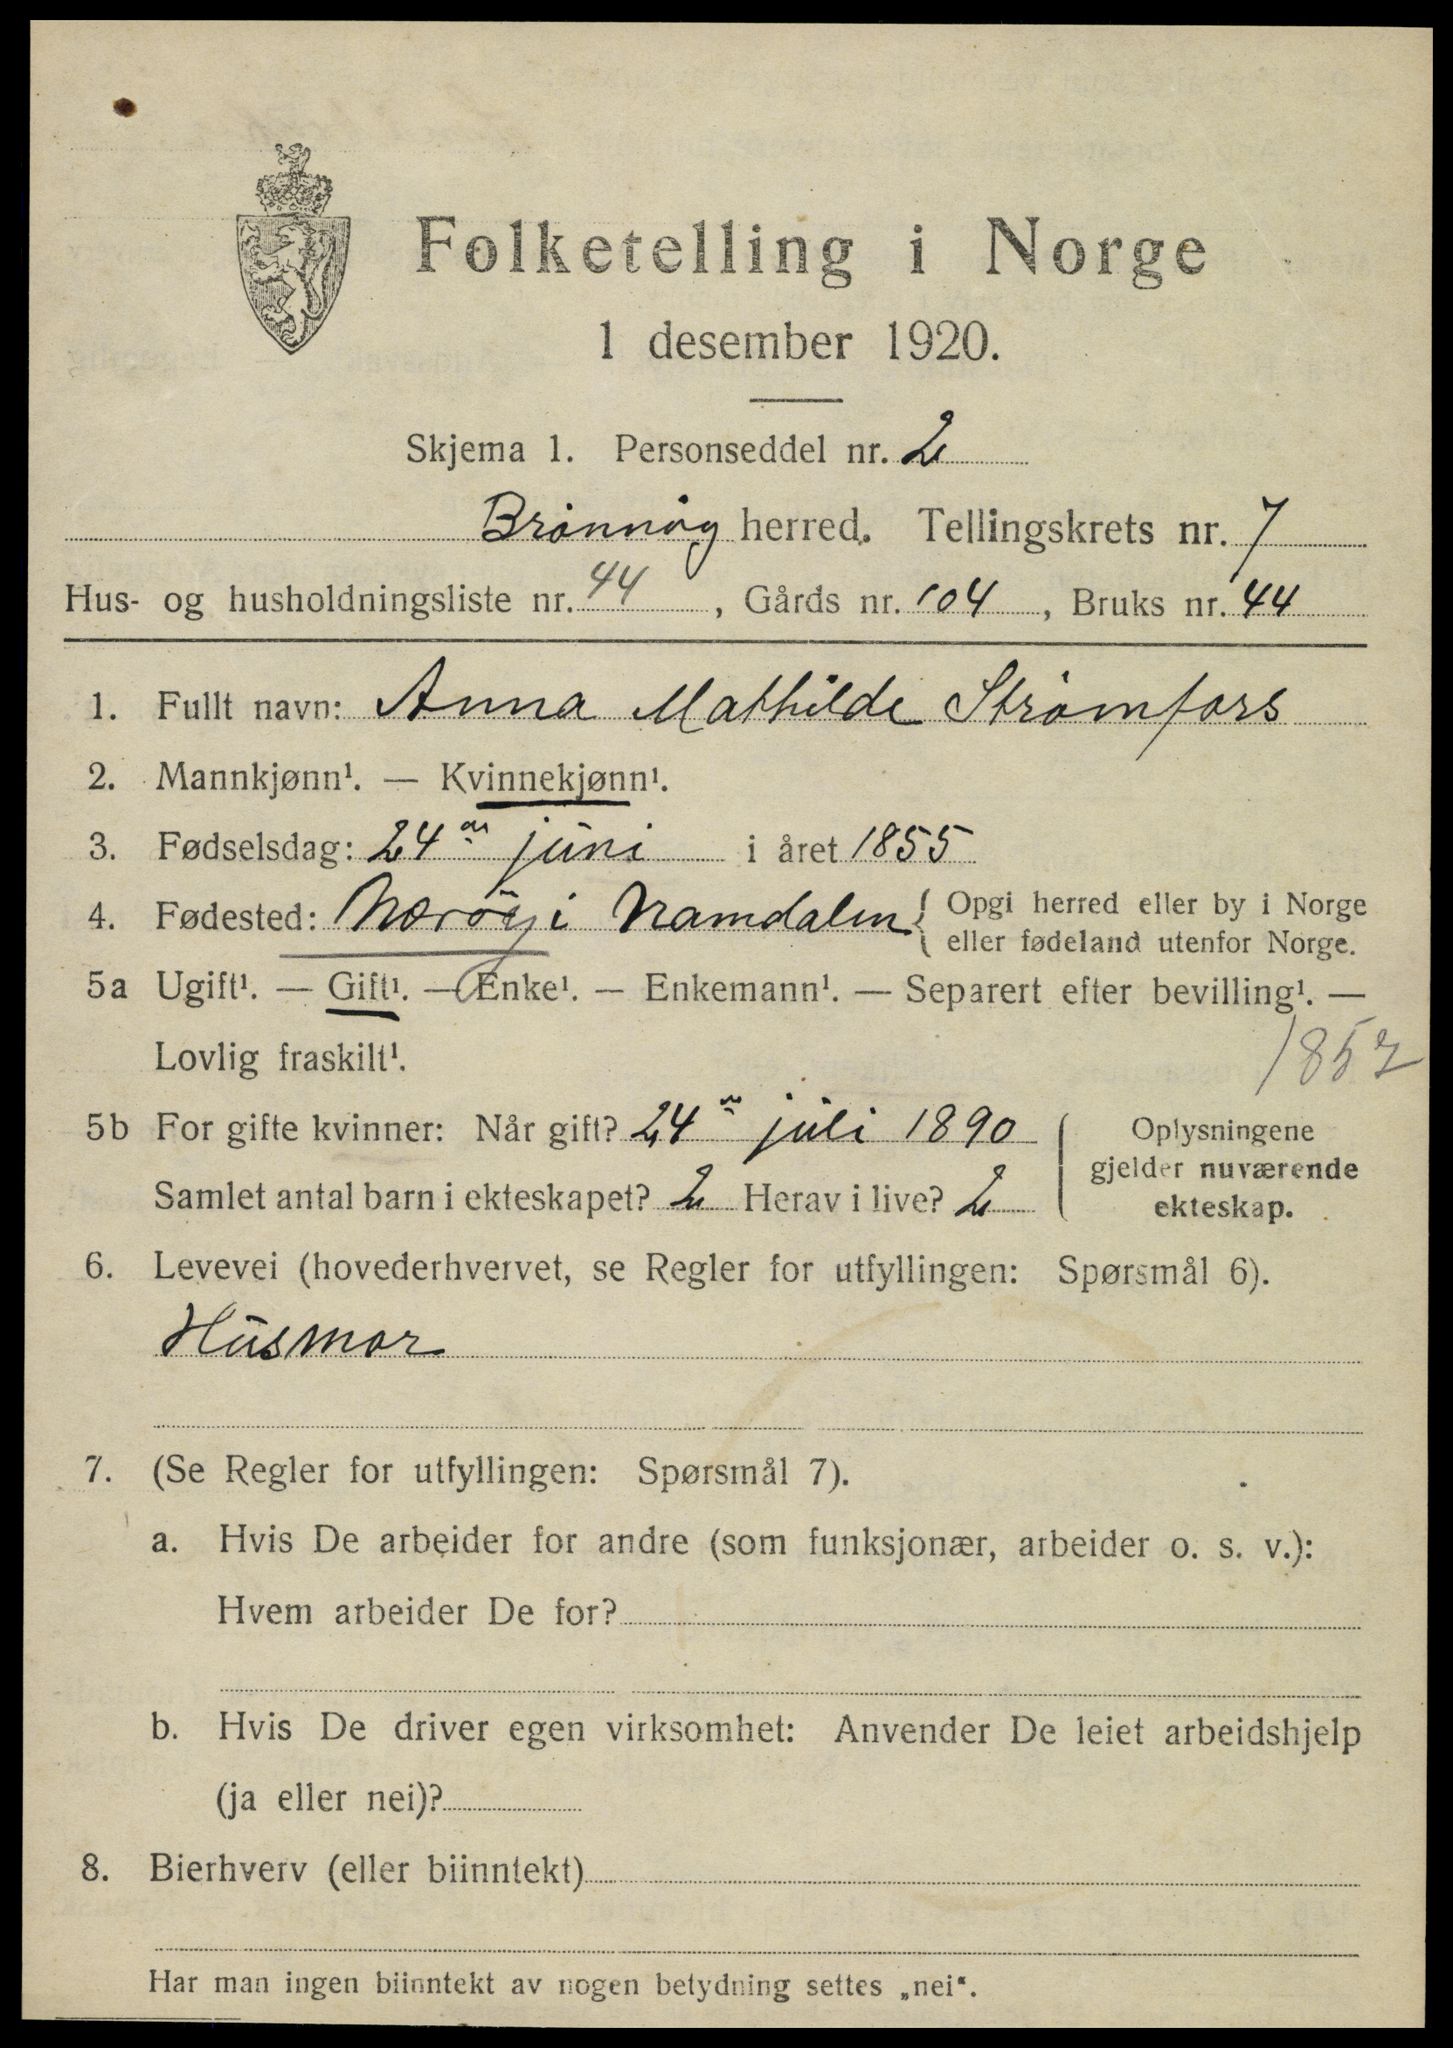 Folketelling i Norge
1 desember 1920.
Skjema 1. Personseddel nr. 2
Brønnøy herred. Tellingskrets nr. 7
Hus- og husholdningsliste nr. 44, Gårds nr. 104, Bruks nr. 44
1. Fullt navn: Anna Mathilde Strømfors
2. Mannkjønn¹. — Kvinnekjønn¹.
3. Fødselsdag: 24de juni i året 1855
4. Fødested: Nærøy i Namdalen { Opgi herred eller by i Norge
eller fødeland utenfor Norge.
5a Ugift¹. — Gift¹. — Enke¹. — Enkemann¹. — Separert efter bevilling¹. —
Lovlig fraskilt¹.
1857
5b For gifte kvinner: Når gift? 24de juli 1890
Samlet antal barn i ekteskapet? 2 Herav i live? 2
Oplysningene
gjelder nuværende
ekteskap.
6. Levevei (hovederhvervet, se Regler for utfyllingen: Spørsmål 6).
Husmor
7. (Se Regler for utfyllingen: Spørsmål 7).
a. Hvis De arbeider for andre (som funksjonær, arbeider o. s. v.):
Hvem arbeider De for?
b. Hvis De driver egen virksomhet: Anvender De leiet arbeidshjelp
(ja eller nei)?
8. Bierhverv (eller biinntekt)
Har man ingen biinntekt av nogen betydning settes „nei“.